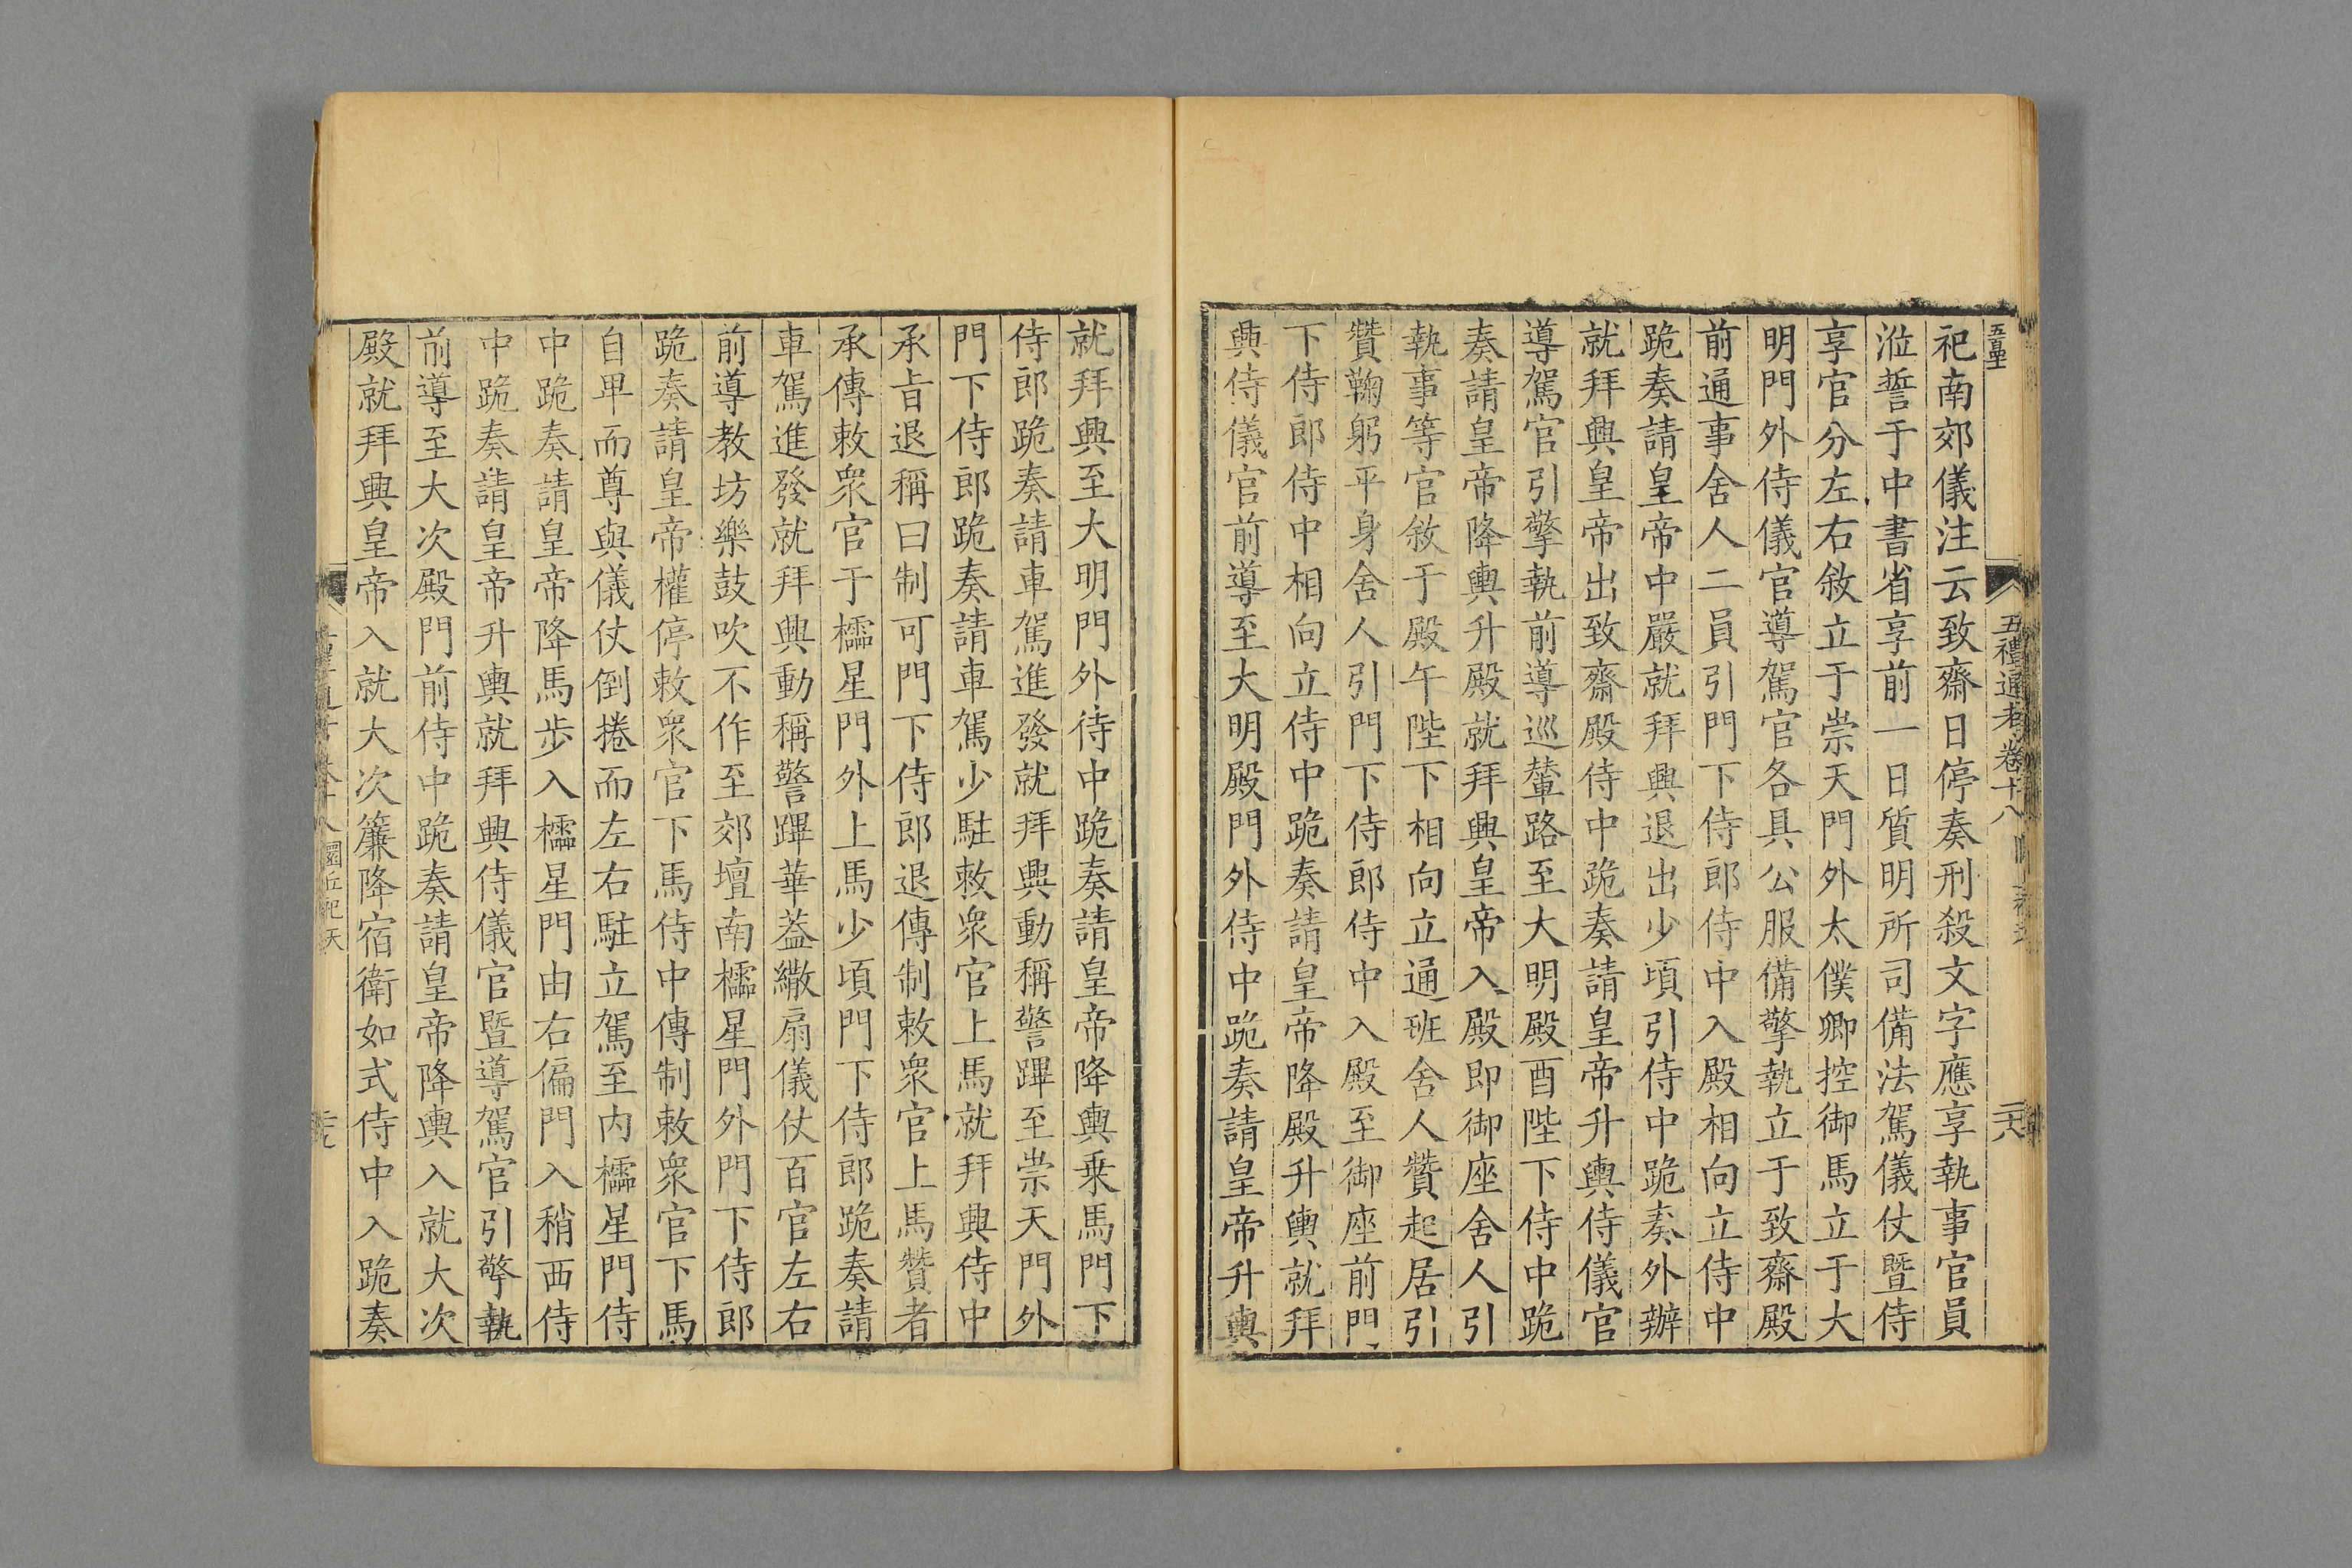 五禮通考卷十八
祀南郊儀注云致齋日停奏刑殺文字應享執事官員
涖誓于中書省享前一日質明所司備法駕儀仗暨侍
享官分左右敘立于崇天門外太僕卿控御馬立于大
明門外侍儀官導駕官各具公服備擎執立于致齋殿
前通事舍人二員引門下侍郎侍中入殿相向立侍中
跪奏請皇帝中嚴就拜興退出少頃引侍中跪奏外辦
就拜興皇帝出致齋殿侍中跪奏請皇帝升輿侍儀官
導駕官引擎執前導巡輦路至大明殿酉陛下侍中跪
奏請皇帝降輿升殿就拜興皇帝入殿即御座舍人引
執事等官敘于殿午陛下相向立通班舍人贊起居引
贊鞠躬平身舍人引門下侍郎侍中入殿至御座前門
下侍郎侍中相向立侍中跪奏請皇帝降殿升輿就拜
興侍儀官前導至大明殿門外侍中跪奏請皇帝升輿
就拜興至大明門外侍中跪奏請皇帝降輿乗馬門下
侍郎跪奏請車駕進發就拜興動稱警蹕至崇天門外
門下侍郎跪奏請車駕少駐敕衆官上馬就拜興侍中
承旨退稱曰制可門下侍郎退傳制敕衆官上馬贊者
承傳敕衆官于櫺星門外上馬少頃門下侍郎跪奏請
車駕進發就拜興動稱警蹕華蓋繖扇儀仗百官左右
前導教坊樂鼓吹不作至郊壇南櫺星門外門下侍郎
跪奏請皇帝權停敕衆官下馬侍中傳制敕衆官下馬
自卑而尊與儀仗倒捲而左右駐立駕至内櫺星門侍
中跪奏請皇帝降馬步入櫺星門由右偏門入稍西侍
中跪奏請皇帝升輿就拜興侍儀官暨導駕官引擎執
前導至大次殿門前侍中跪奏請皇帝降輿入就大次
殿就拜興皇帝入就大次簾降宿衛如式侍中入跪奏
圜丘祀天